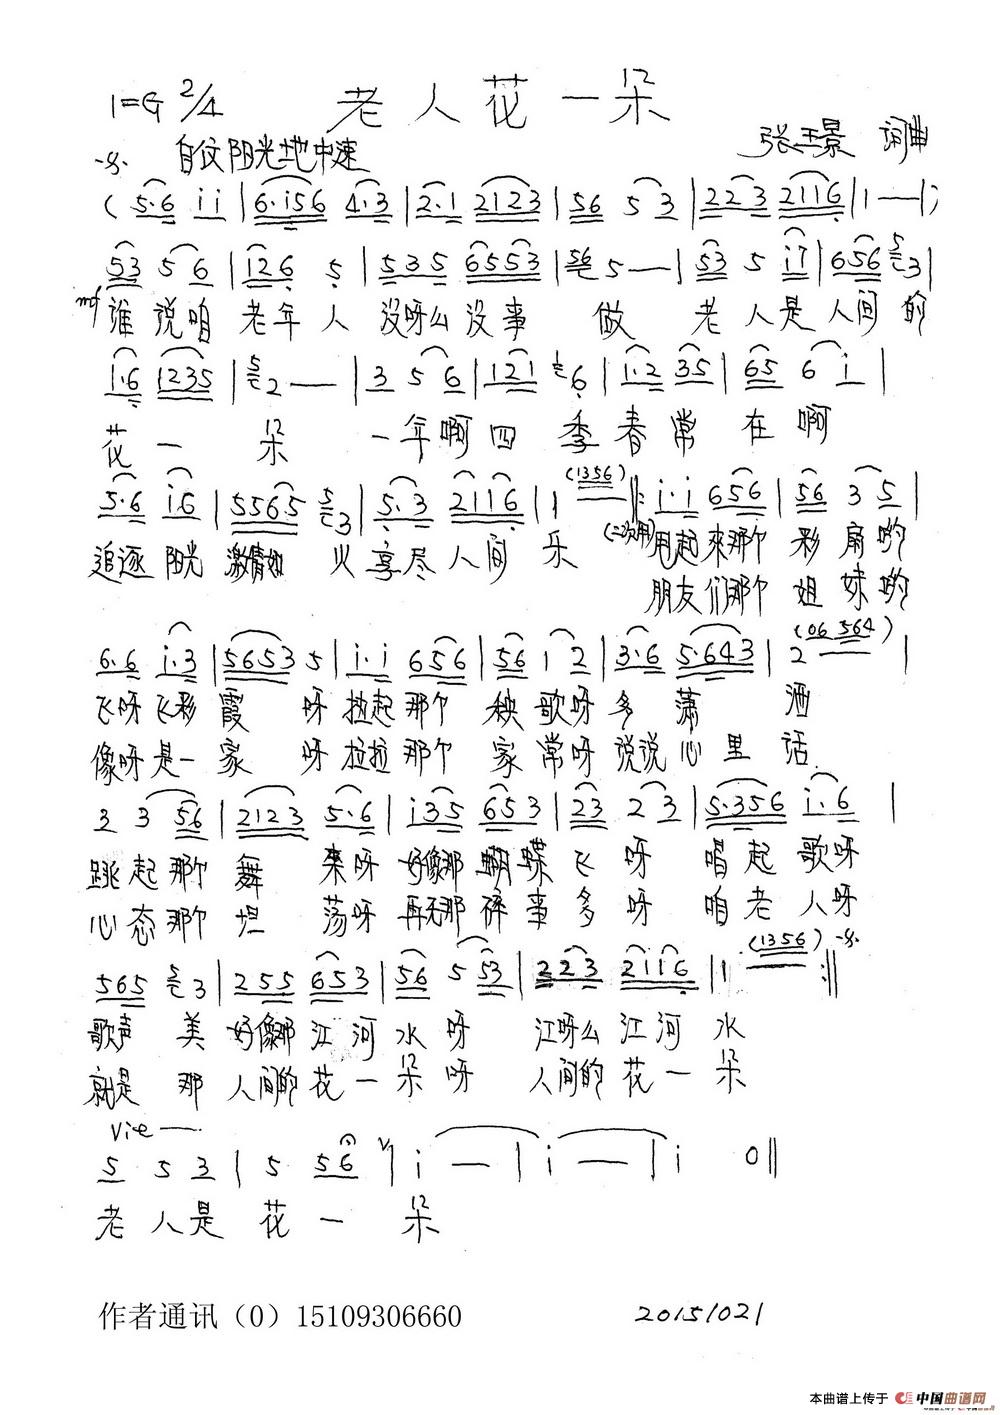 老人花一朵
1=G 2/4
自 阳光地中速
张玉景 词曲
(5·6 i i | 6·i56 4·3 | 2·1 2123 | 56 5 3 | 223 2116 | 1 — | )
53 5 6 | 126 5 | 535 6553 | 56 5 — | 53 5 i7 | 656 5 3 |
mf 谁说咱老年人没呀么没事做老人是人间的
1·6 1235 | 5 2 — | 3 5 6 | 121 1 6 | 1·2 35 | 65 6 i |
花一朵一年啊四季春常在啊
5·6 i·6 | 5565 5 3 | 5·3 2116 | 1 (1356) ‖: i·i 656 | 56 3 5 |
追逐阳光激情如火享尽人间乐 (二次用) 甩起来那个彩扇哟
朋友们那个姐妹哟
6·6 i·3 | 5653 5 | i·i 656 | 56 1 2 | 3·6 5·643 | 2 (06 564) |
飞呀飞彩霞呀拉起那个秧歌呀多潇洒
像呀是一家呀拉拉那个家常呀说说心里话
3 3 56 | 2123 5·6 | i35 653 | 23 2 3 | 5·356 i·6 |
跳起那个舞来呀好像那蝴蝶飞呀唱起歌呀
心态那个坦荡呀再无那碎事多呀咱老人呀
565 5 3 | 255 653 | 56 5 53 | 223 2116 | 1 (1356) :‖
歌声美好像那江河水呀江呀么江河水
就是那人间的花一朵呀人间的花一朵
5 5 3 | 5 56 | i — | i — | i 0 ‖
老人是花一朵
作者通讯（0）15109306660
20151021
本曲谱上传于 中国曲谱网